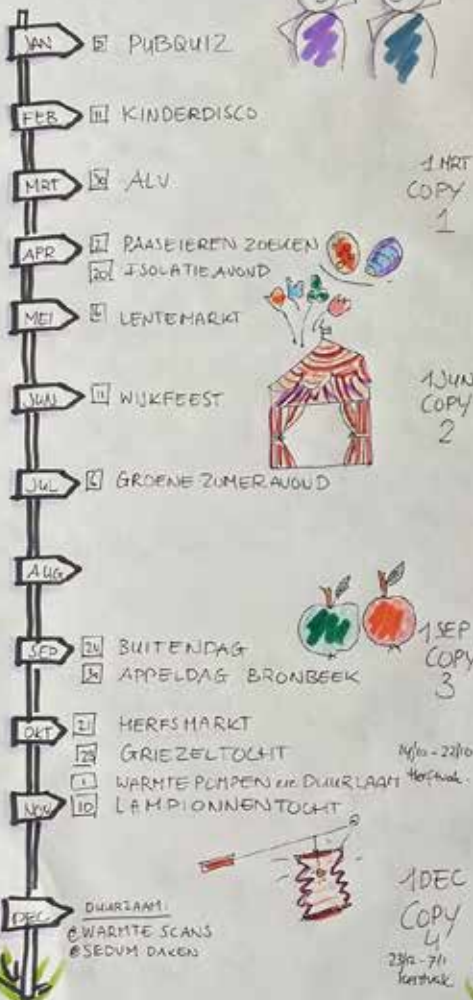 JAN PUBQUIZ
FEB 11 KINDERDISCO
MRT 30 ALV
1 MRT
COPY
1
APR PAASEIEREN ZOEKEN
20 ISOLATIEAVOND
MEI LENTEMARKT
JUN 11 WIJKFEEST
1 JUN
COPY
2
JUL 6 GROENE ZOMERAVOND
AUG
SEP 24 BUITENDAG
APPELDAG BRONBEEK
1 SEP
COPY
3
OKT 21 HERFSMARKT
GRIEZELTOCHT
14/10 - 22/10
1 WARMTE POMPEN DUURZAAM
NOV 10 LAMPIONNENTOCHT
DEC DUURZAAM:
WARMTE SCANS
SEDUM DAKEN
1 DEC
COPY
4
23/12 - 7/1
kerstvak